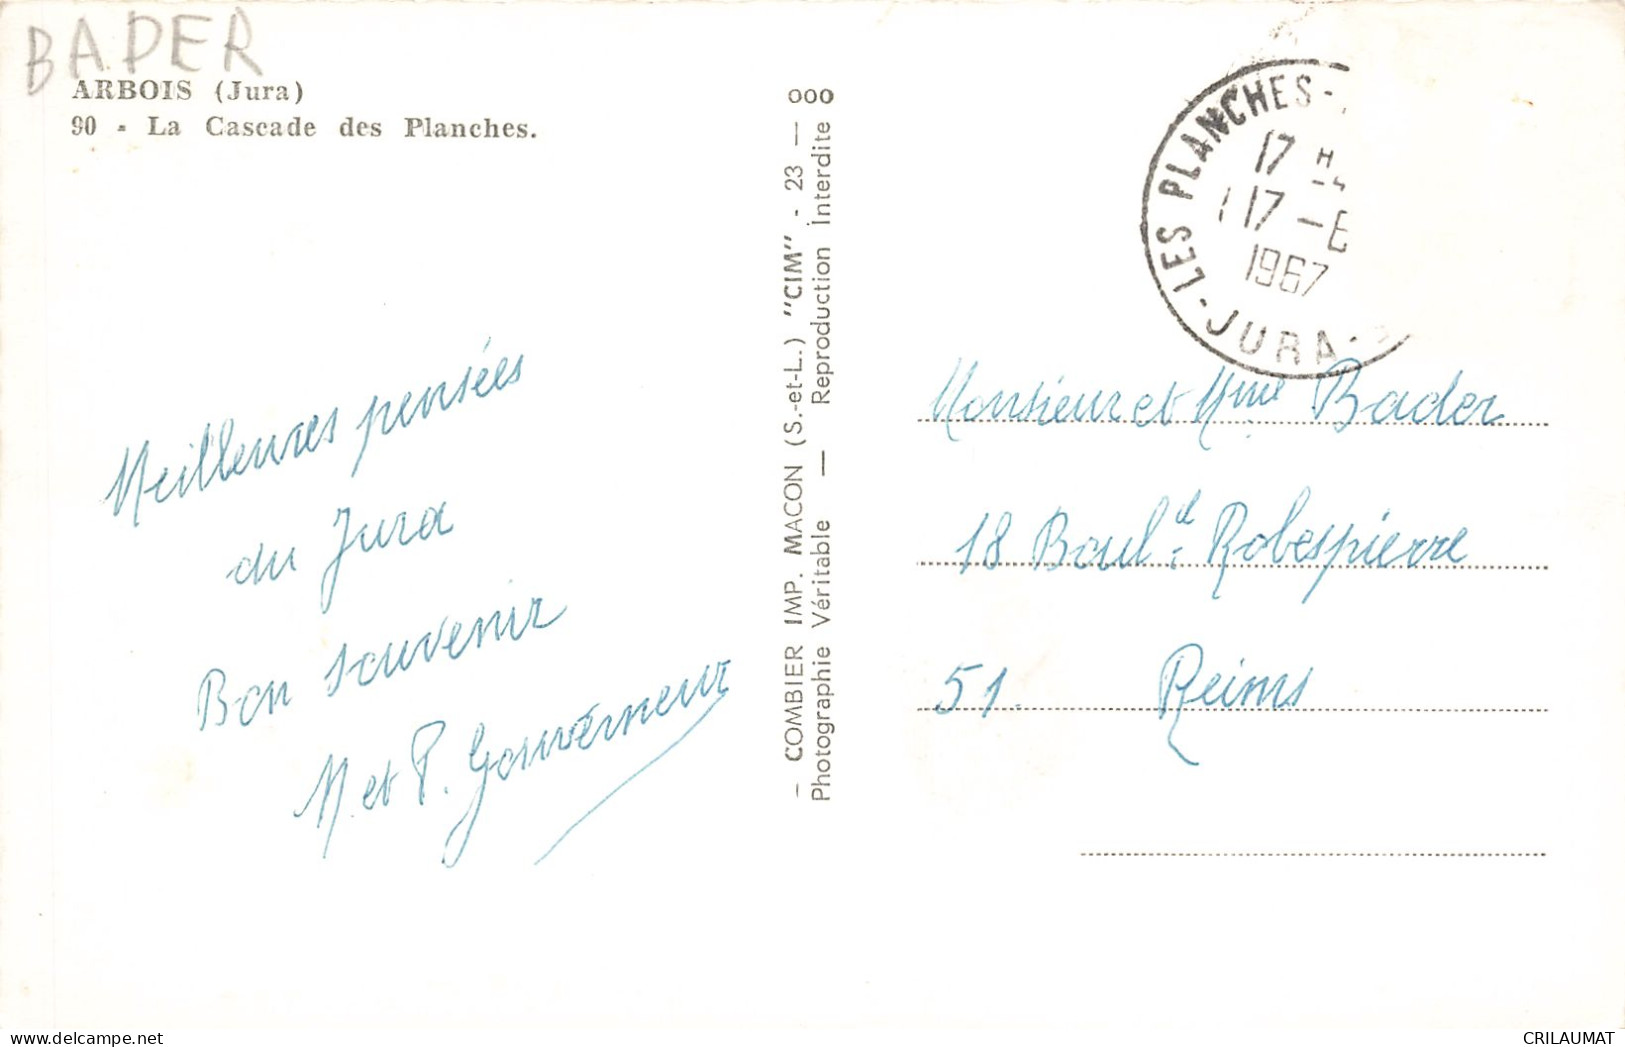 BADER
ARBOIS (Jura)
90 - La Cascade des Planches.
Meilleures pensées
du Jura
Bon souvenir
M et P. Gouverneur
— COMBIER IMP. MACON (S.-et-L.) "CIM" - 23 — ooo
Photographie Véritable — Reproduction interdite
LES PLANCHES-
17 H
17 -6
1967
- JURA -
Monsieur et Mme Bader
18 Boul.d Robespierre
51. Reims
CRILAUMAT